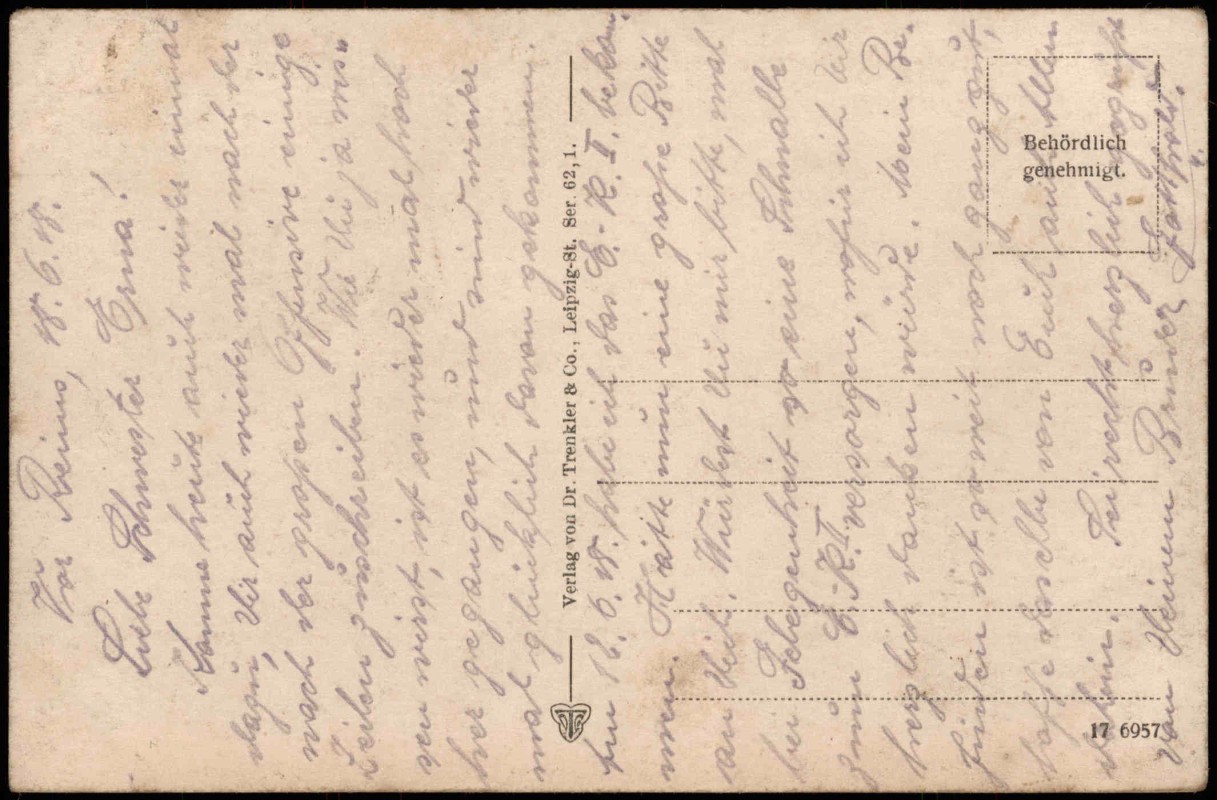 Vor Reims, 18. 6. 18.
Liebe Schwester Erna!
Komme heute auch wieder einmal
dazu, Dir auch wieder mal nach der
nach der großen Offensive einige
Zeilen zu schreiben. Wie Du ja wis-
sen wirst, ist es wieder mal hoch
her gegangen, und sind wieder
mal glücklich davon gekommen.
Am 16. 6. 18. habe ich das E.-K. I. bekom-
men. Hätte nun eine große Bitte
an Dich. Würdest Du mir bitte, mal
bei Gelegenheit so eine Schnalle
zum E.-K. I versorgen, wofür ich Dir
herzlich danken würde. Mein Be-
finden ist soweit noch ganz gut,
hoffe dasselbe von Euch allen
daheim. Sei recht herzlich gegrüßt
von Deinem Bruder
Verlag von Dr. Trenkler & Co., Leipzig-St. Ser. 62, 1.
Behördlich
genehmigt.
17 6957